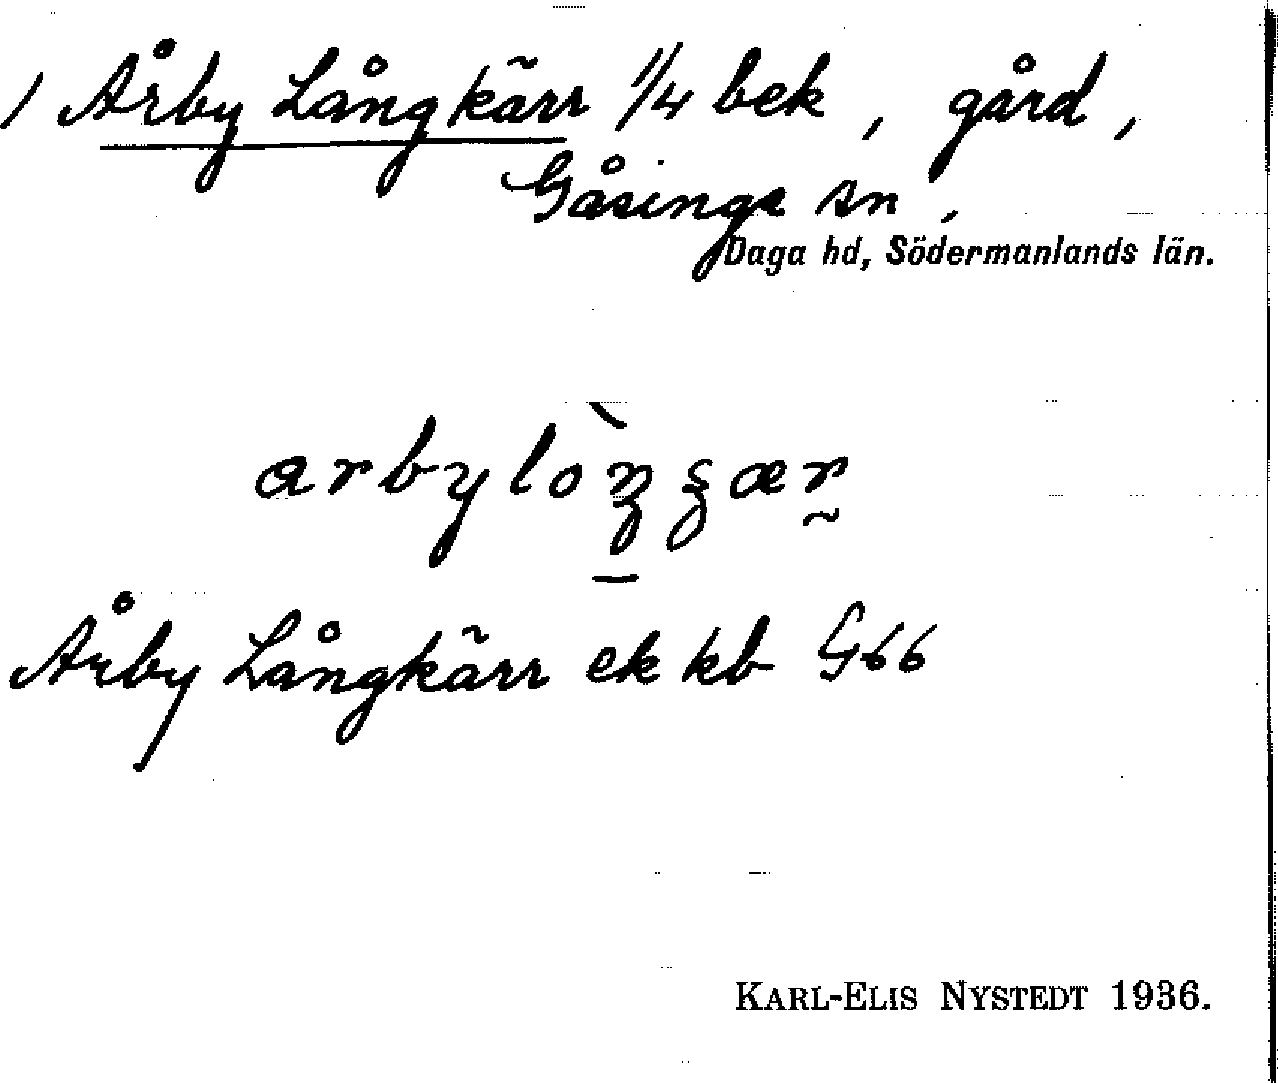 / Årby Långkärr 1/4 bek, gård,
Gåsinge sn,
Daga hd, Södermanlands län.
Årby Långkärr ek kb G66
KARL-ELIS NYSTEDT 1936.